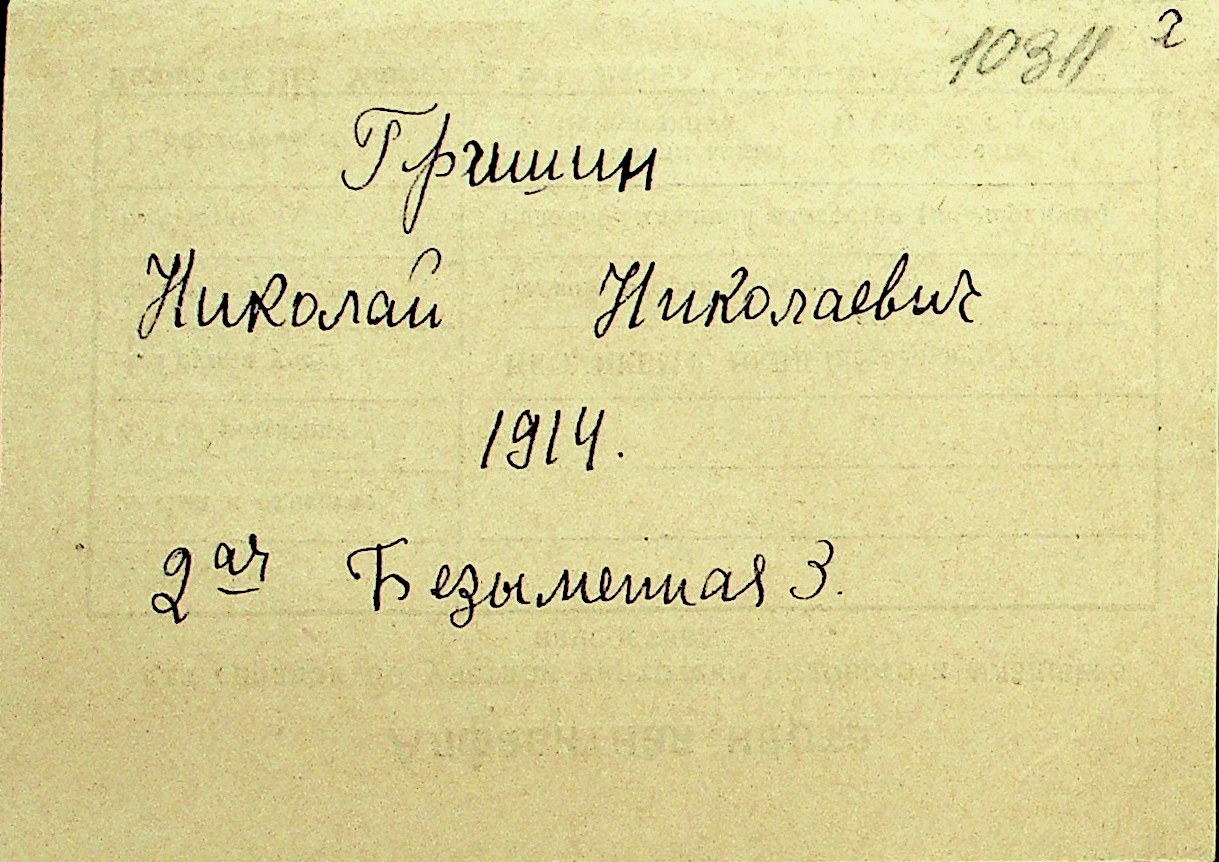 10311 2
Гришин
Николай Николаевич
1914.
2ая Безыменная 3.